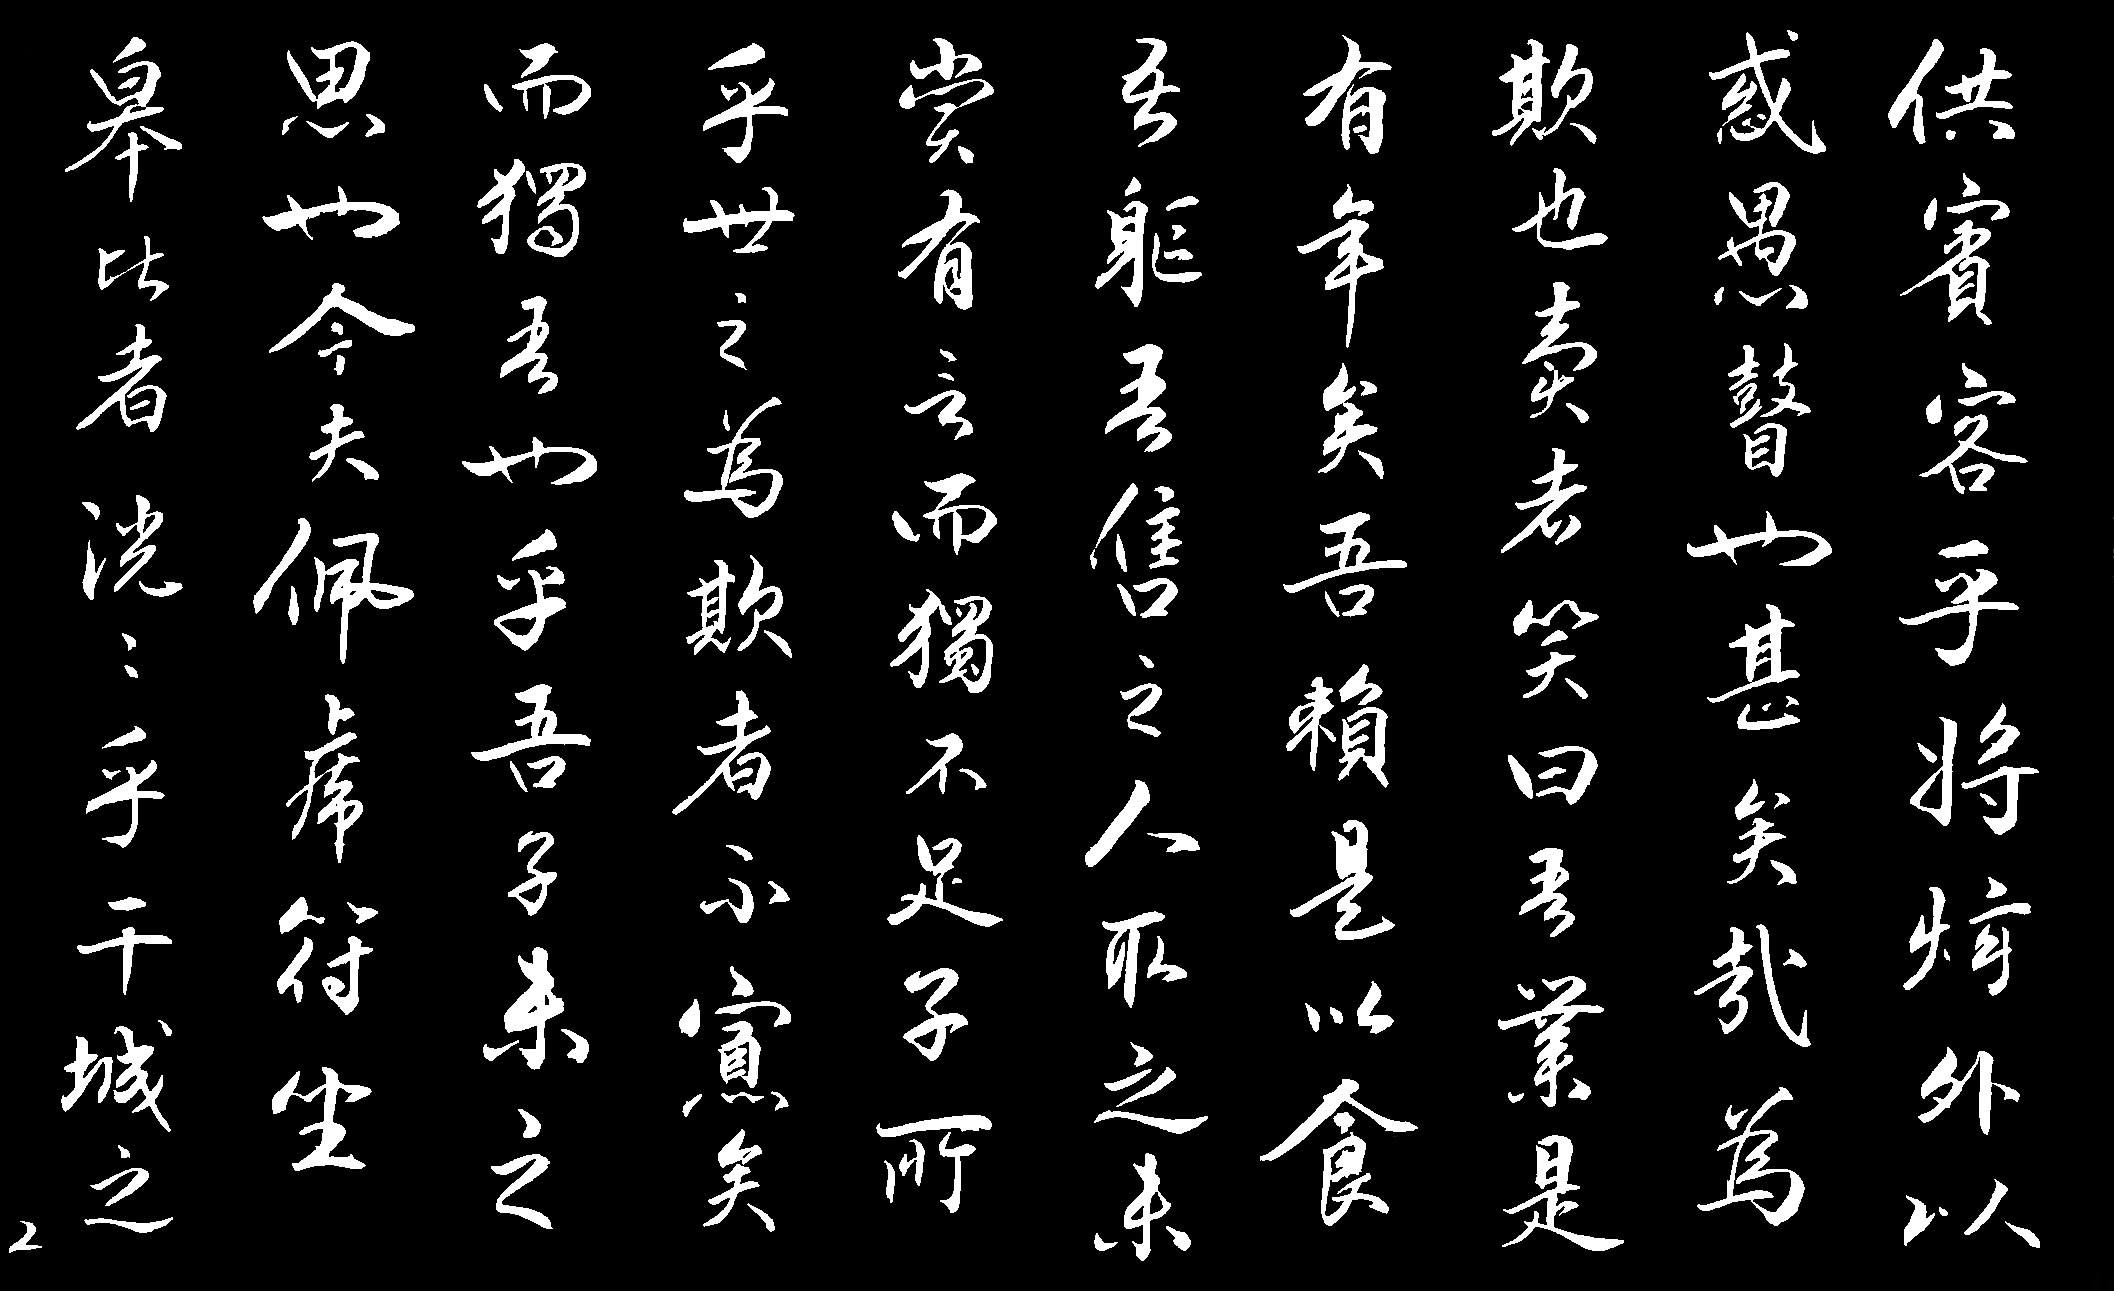 供賓客乎將炫外以
惑愚瞽也甚矣哉為
欺也賣者笑曰吾業是
有年矣吾賴是以食
吾軀吾售之人取之未
嘗有言而獨不足子所
乎世之為欺者不寡矣
而獨吾也乎吾子未之
思也今夫佩虎符坐
皋比者洸〻乎干城之
2